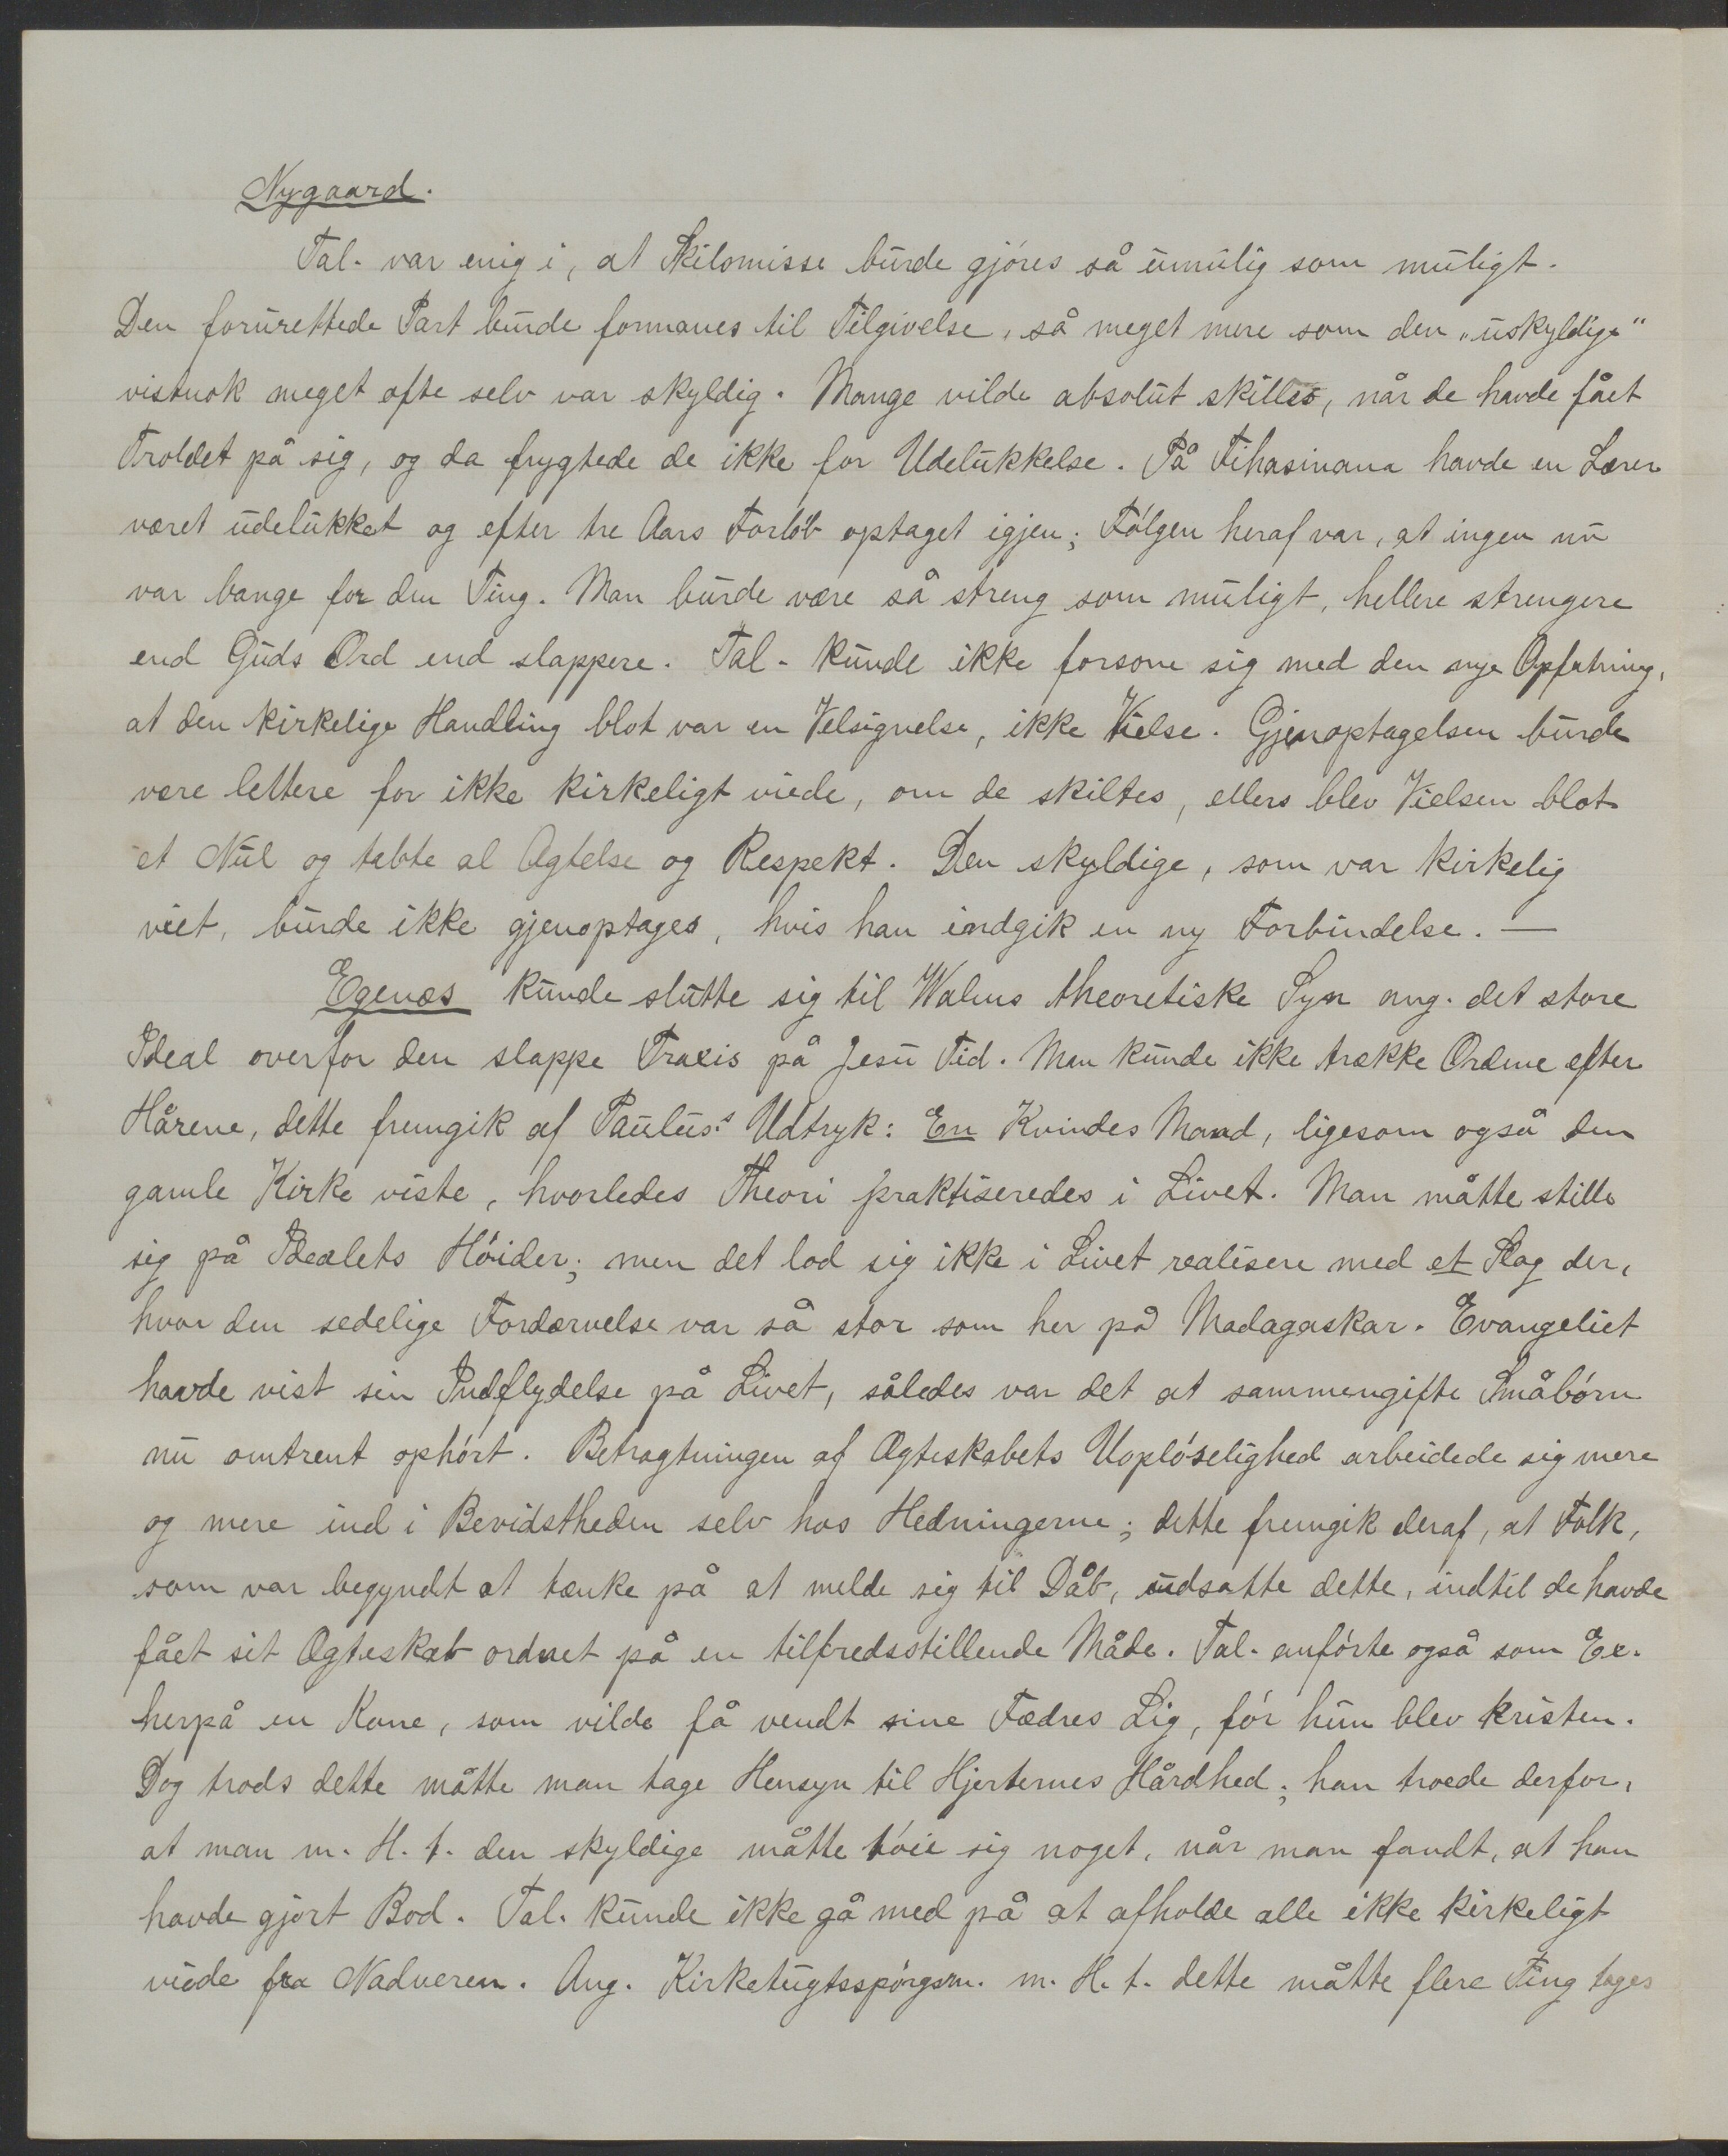 Nygaard.
Tal. var enig i, at Skilsmisse burde gjøres så umulig som muligt.
Den forurettede Part burde formanes til Tilgivelse, så meget mere som den „uskyldige“
vistnok meget ofte selv var skyldig. Mange vilde absolut skilles, når de havde fået
Troldet på sig, og da frygtede de ikke for Udelukkelse. På Fihasinana havde en Lærer
været udelukket og efter tre Aars Forløb optaget igjen; Følgen heraf var, at ingen nu
var bange for den Ting. Man burde være så streng som muligt, hellere strengere
end Guds Ord end slappere. Tal. kunde ikke forsone sig med den nye Opfatning,
at den kirkelige Handling blot var en Velsignelse, ikke Vielse. Gjenoptagelsen burde
være lettere for ikke kirkeligt viede, om de skiltes, ellers blev Vielsen blot
et Nul og tabte al Agtelse og Respekt. Den skyldige, som var kirkelig
viet, burde ikke gjenoptages, hvis han indgik en ny Forbindelse. —
Egenæs kunde slutte sig til Walens theoretiske Syn ang. det store
Ideal overfor den slappe Praxis på Jesu Tid. Man kunde ikke trække Ordene efter
Hårene, dette fremgik af Paulus's Udtryk: En Kvindes Mand, ligesom også den
gamle Kirke viste, hvorledes Theori praktiseredes i Livet. Man måtte stille
sig på Idealets Høider; men det lod sig ikke i Livet realisere med et Slag der,
hvor den sedelige Fordærvelse var så stor som her på Madagaskar. Evangeliet
havde vist sin Indflydelse på Livet, således var det at sammengifte Småbørn
nu omtrent ophørt. Betragtningen af Ægteskabets Uopløselighed arbeidede sig mere
og mere ind i Bevidstheden selv hos Hedningerne; dette fremgik deraf, at Folk,
som var begyndt at tænke på at melde sig til Dåb, udsatte dette, indtil de havde
fået sit Ægteskab ordnet på en tilfredsstillende Måde. Tal. anførte også som Ex.
herpå en Kone, som vilde få vendt sine Fædres Lig, før hun blev kristen.
Dog trods dette måtte man tage Hensyn til Hjerternes Hårdhed; han troede derfor,
at man m. H. t. den skyldige måtte tøie sig noget, når man fandt, at han
havde gjort Bod. Tal. kunde ikke gå med på at afholde alle ikke kirkeligt
viede fra Nadveren. Ang. Kirketugtsspørgsm. m. H. t. dette måtte flere Ting tages